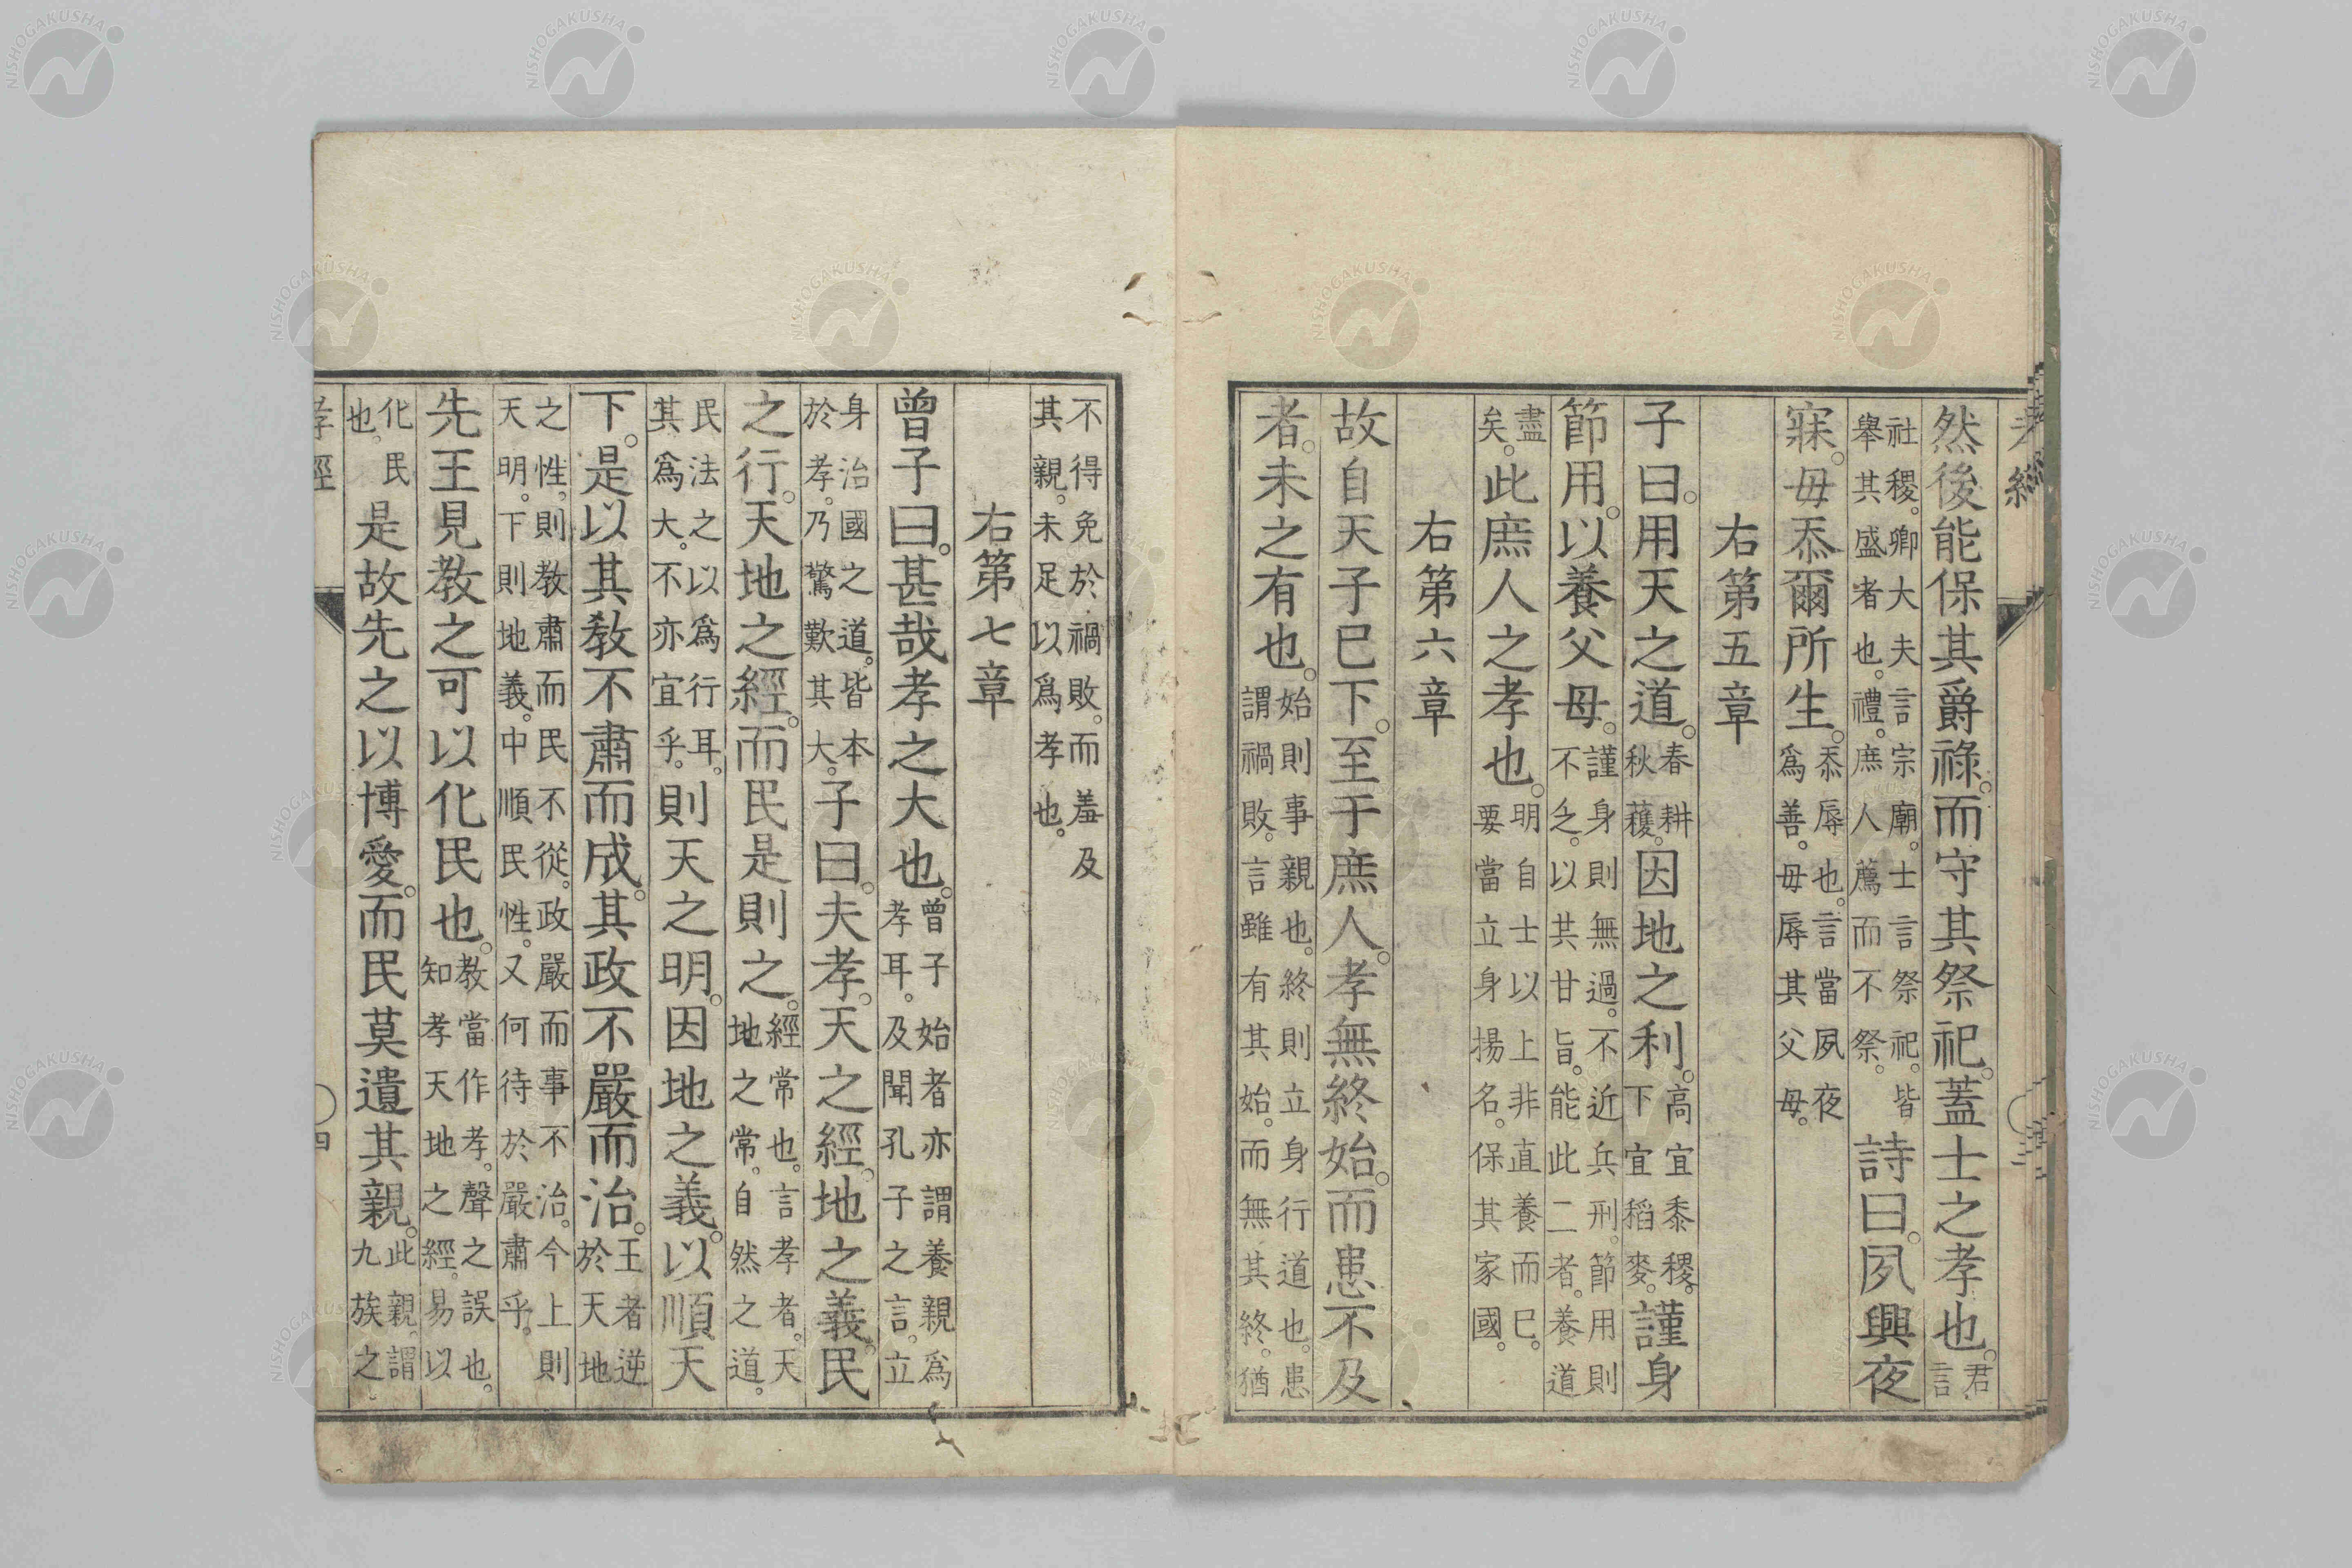 然後能保其爵祿。而守其祭祀。蓋士之孝也。君言
社稷。卿大夫言宗廟。士言祭祀。皆擧其盛者也。禮。庶人薦而不祭。詩曰。夙興夜
寐。毋忝爾所生。忝辱也。言當夙夜爲善。毋辱其父母。
右第五章
子曰。用天之道。春耕秋穫。因地之利。高宜黍稷。下宜稻麥。謹身
節用。以養父母。謹身則無過。不近兵刑。節用則不乏。以共甘旨。能此二者。養道
盡矣。此庶人之孝也。明自士以上非直養而已。要當立身揚名。保其家國。
右第六章
故自天子已下。至于庶人。孝無終始。而患不及
者。未之有也。始則事親也。終則立身行道也。患謂禍敗。言雖有其始。而無其終。猶
不得免於禍敗。而羞及其親。未足以爲孝也。
右第七章
曾子曰。甚哉孝之大也。曾子始者亦謂養親爲孝耳。及聞孔子之言。立
身治國之道。皆本於孝。乃驚歎其大。子曰。夫孝。天之經。地之義。民
之行。天地之經。而民是則之。經常也。言孝者。天地之常。自然之道。
民法之以爲行耳。其爲大。不亦宜乎。則天之明。因地之義。以順天
下。是以其教不肅而成。其政不嚴而治。王者逆於天地
之性。則教肅而民不從。政嚴而事不治。今上則天明。下則地義。中順民性。又何待於嚴肅乎。
先王見教之可以化民也。教當作孝。聲之誤也。知孝天地之經。易以
化民也。是故先之以博愛。而民莫遺其親。此親。謂九族之
孝經
四